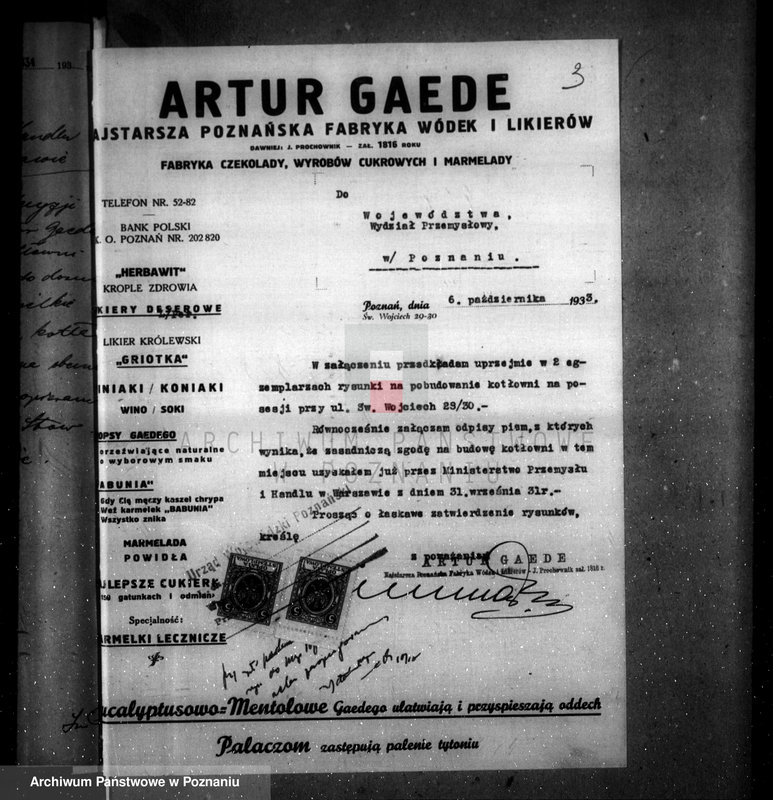 3
ARTUR GAEDE
AJSTARSZA POZNAŃSKA FABRYKA WÓDEK I LIKIERÓW
DAWNIEJ: J. PROCHOWNIK – ZAŁ. 1816 ROKU
FABRYKA CZEKOLADY, WYROBÓW CUKROWYCH I MARMELADY
TELEFON NR. 52-82
BANK POLSKI
K. O. POZNAŃ NR. 202 820
„HERBAWIT"
KROPLE ZDROWIA
KIERY DESEROWE
LIKIER KRÓLEWSKI
„GRIOTKA"
INIAKI / KONIAKI
WINO / SOKI
OPSY GAEDEGO
orzeźwiające naturalne
o wyborowym smaku
ABUNIA"
Gdy Cię męczy kaszel chrypa
Weź karmelek "BABUNIA"
Wszystko znika
MARMELADA
POWIDŁA
JLEPSZE CUKIERK
150 gatunkach i odmian
Specjalność:
ARMELKI LECZNICZE
Do
Województwa,
Wydział Przemysłowy,
w/ Poznaniu.
Poznań, dnia 6. października 1933.
Św. Wojciech 29-30
W załączeniu przedkładam uprzejmie w 2 eg-
zemplarzach rysunki na pobudowanie kotłowni na po-
sesji przy ul. Św. Wojciech 29/30.-
Równocześnie załączam odpisy pism, z których
wynika, że zasadniczą zgodę na budowę kotłowni w tem
miejscu uzyskałem już przez Ministerstwo Przemysłu
i Handlu w Warszawie z dniem 31. września 31r.-
Prosząc o łaskawe zatwierdzenie rysunków,
kreślę
z poważaniem
ARTUR GAEDE
Najstarsza Poznańska Fabryka Wódek i Likierów - J. Prochownik zał. 1816 r.
Urząd Wojewódzki Poznański
ucalyptusowo=Mentolowe Gaedego ułatwiają i przyspieszają oddech
Palaczom zastępują palenie tytoniu
ARCHIWUM PAŃSTWOWE
W POZNANIU
Archiwum Państwowe w Poznaniu